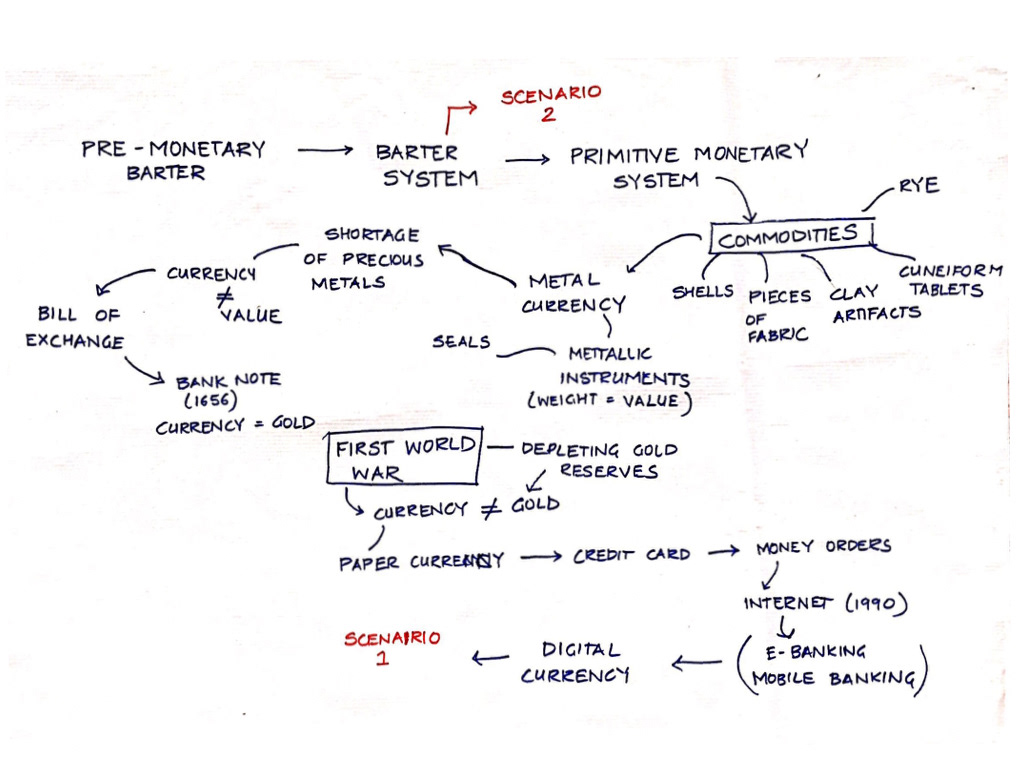 SCENARIO
2
PRE-MONETARY
BARTER
BARTER
SYSTEM
PRIMITIVE MONETARY
SYSTEM
RYE
COMMODITIES
SHELLS
PIECES
OF
FABRIC
CLAY
ARTIFACTS
CUNEIFORM
TABLETS
METAL
CURRENCY
METTALLIC
INSTRUMENTS
(WEIGHT = VALUE)
SEALS
SHORTAGE
OF PRECIOUS
METALS
CURRENCY
≠
VALUE
BILL OF
EXCHANGE
BANK NOTE
(1656)
CURRENCY = GOLD
FIRST WORLD
WAR
DEPLETING GOLD
RESERVES
CURRENCY ≠ GOLD
PAPER CURRENCY
CREDIT CARD
MONEY ORDERS
INTERNET (1990)
(E-BANKING
MOBILE BANKING)
DIGITAL
CURRENCY
SCENAIRIO
1